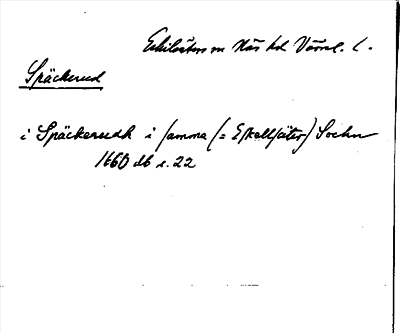 Eskilsäters sn Näs hd Värml. l.
Späckerud
i Späckerudh i samma (= Eskellsäter) Sochn
1660 db s. 22